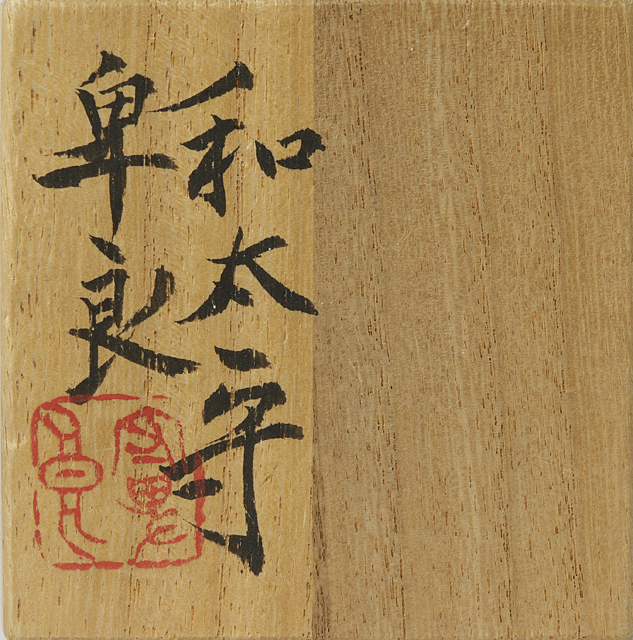 和太守
卑良